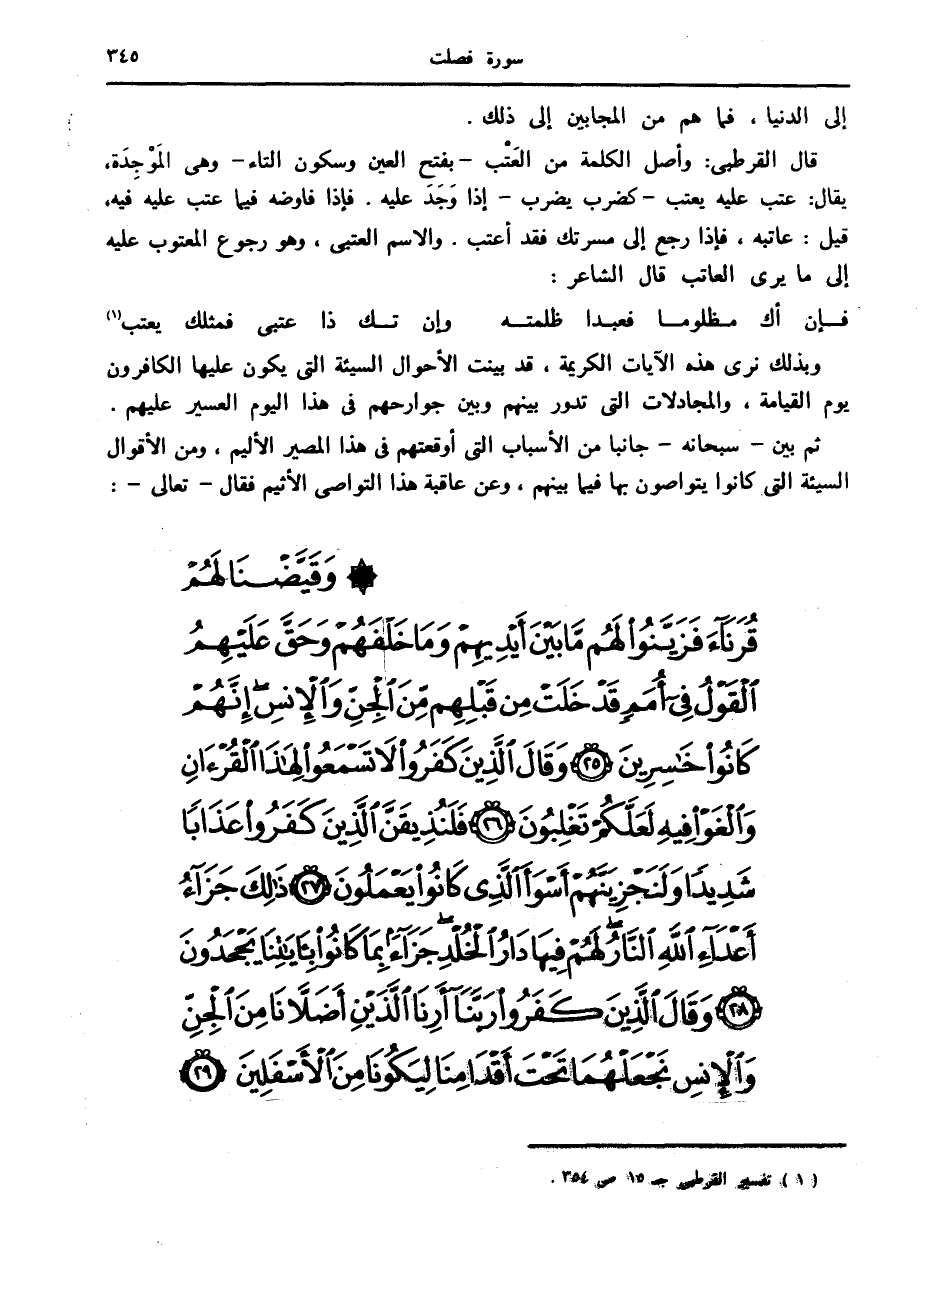 سورة فصلت ٣٤٥
إلى الدنيا ، فما هم من المجابين إلى ذلك .
قال القرطبى: وأصل الكلمة من العَتْب –بفتح العين وسكون التاء– وهى المَوْجِدَة،
يقال: عتب عليه يعتب –كضرب يضرب – إذا وَجَدَ عليه . فإذا فاوضه فيما عتب عليه فيه،
قيل : عاتبه ، فإذا رجع إلى مسرتك فقد أعتب . والاسم العتبى ، وهو رجوع المعتوب عليه
إلى ما يرى العاتب قال الشاعر :
فإن أك مظلوما فعبدا ظلمته وإن تك ذا عتبى فمثلك يعتب(١)
وبذلك نرى هذه الآيات الكريمة ، قد بينت الأحوال السيئة التى يكون عليها الكافرون
يوم القيامة ، والمجادلات التى تدور بينهم وبين جوارحهم فى هذا اليوم العسير عليهم .
ثم بين – سبحانه – جانبا من الأسباب التى أوقعتهم فى هذا المصير الأليم ، ومن الأقوال
السيئة التى كانوا يتواصون بها فيما بينهم ، وعن عاقبة هذا التواصى الأثيم فقال – تعالى – :
۞ وَقَيَّضْنَا لَهُمْ
قُرَنَآءَ فَزَيَّنُوا۟ لَهُم مَّا بَيْنَ أَيْدِيهِمْ وَمَا خَلْفَهُمْ وَحَقَّ عَلَيْهِمُ
ٱلْقَوْلُ فِىٓ أُمَمٍ قَدْ خَلَتْ مِن قَبْلِهِم مِّنَ ٱلْجِنِّ وَٱلْإِنسِ ۖ إِنَّهُمْ
كَانُوا۟ خَٰسِرِينَ ٢٥ وَقَالَ ٱلَّذِينَ كَفَرُوا۟ لَا تَسْمَعُوا۟ لِهَٰذَا ٱلْقُرْءَانِ
وَٱلْغَوْا۟ فِيهِ لَعَلَّكُمْ تَغْلِبُونَ ٢٦ فَلَنُذِيقَنَّ ٱلَّذِينَ كَفَرُوا۟ عَذَابًا
شَدِيدًا وَلَنَجْزِيَنَّهُمْ أَسْوَأَ ٱلَّذِى كَانُوا۟ يَعْمَلُونَ ٢٧ ذَٰلِكَ جَزَآءُ
أَعْدَآءِ ٱللَّهِ ٱلنَّارُ ۖ لَهُمْ فِيهَا دَارُ ٱلْخُلْدِ ۖ جَزَآءًۢ بِمَا كَانُوا۟ بِـَٔايَٰتِنَا يَجْحَدُونَ
٢٨ وَقَالَ ٱلَّذِينَ كَفَرُوا۟ رَبَّنَآ أَرِنَا ٱلَّذَيْنِ أَضَلَّانَا مِنَ ٱلْجِنِّ
وَٱلْإِنسِ نَجْعَلْهُمَا تَحْتَ أَقْدَامِنَا لِيَكُونَا مِنَ ٱلْأَسْفَلِينَ ٢٩
( ١ ) تفسير القرطبى جـ ١٥ ص ٣٥٤ .